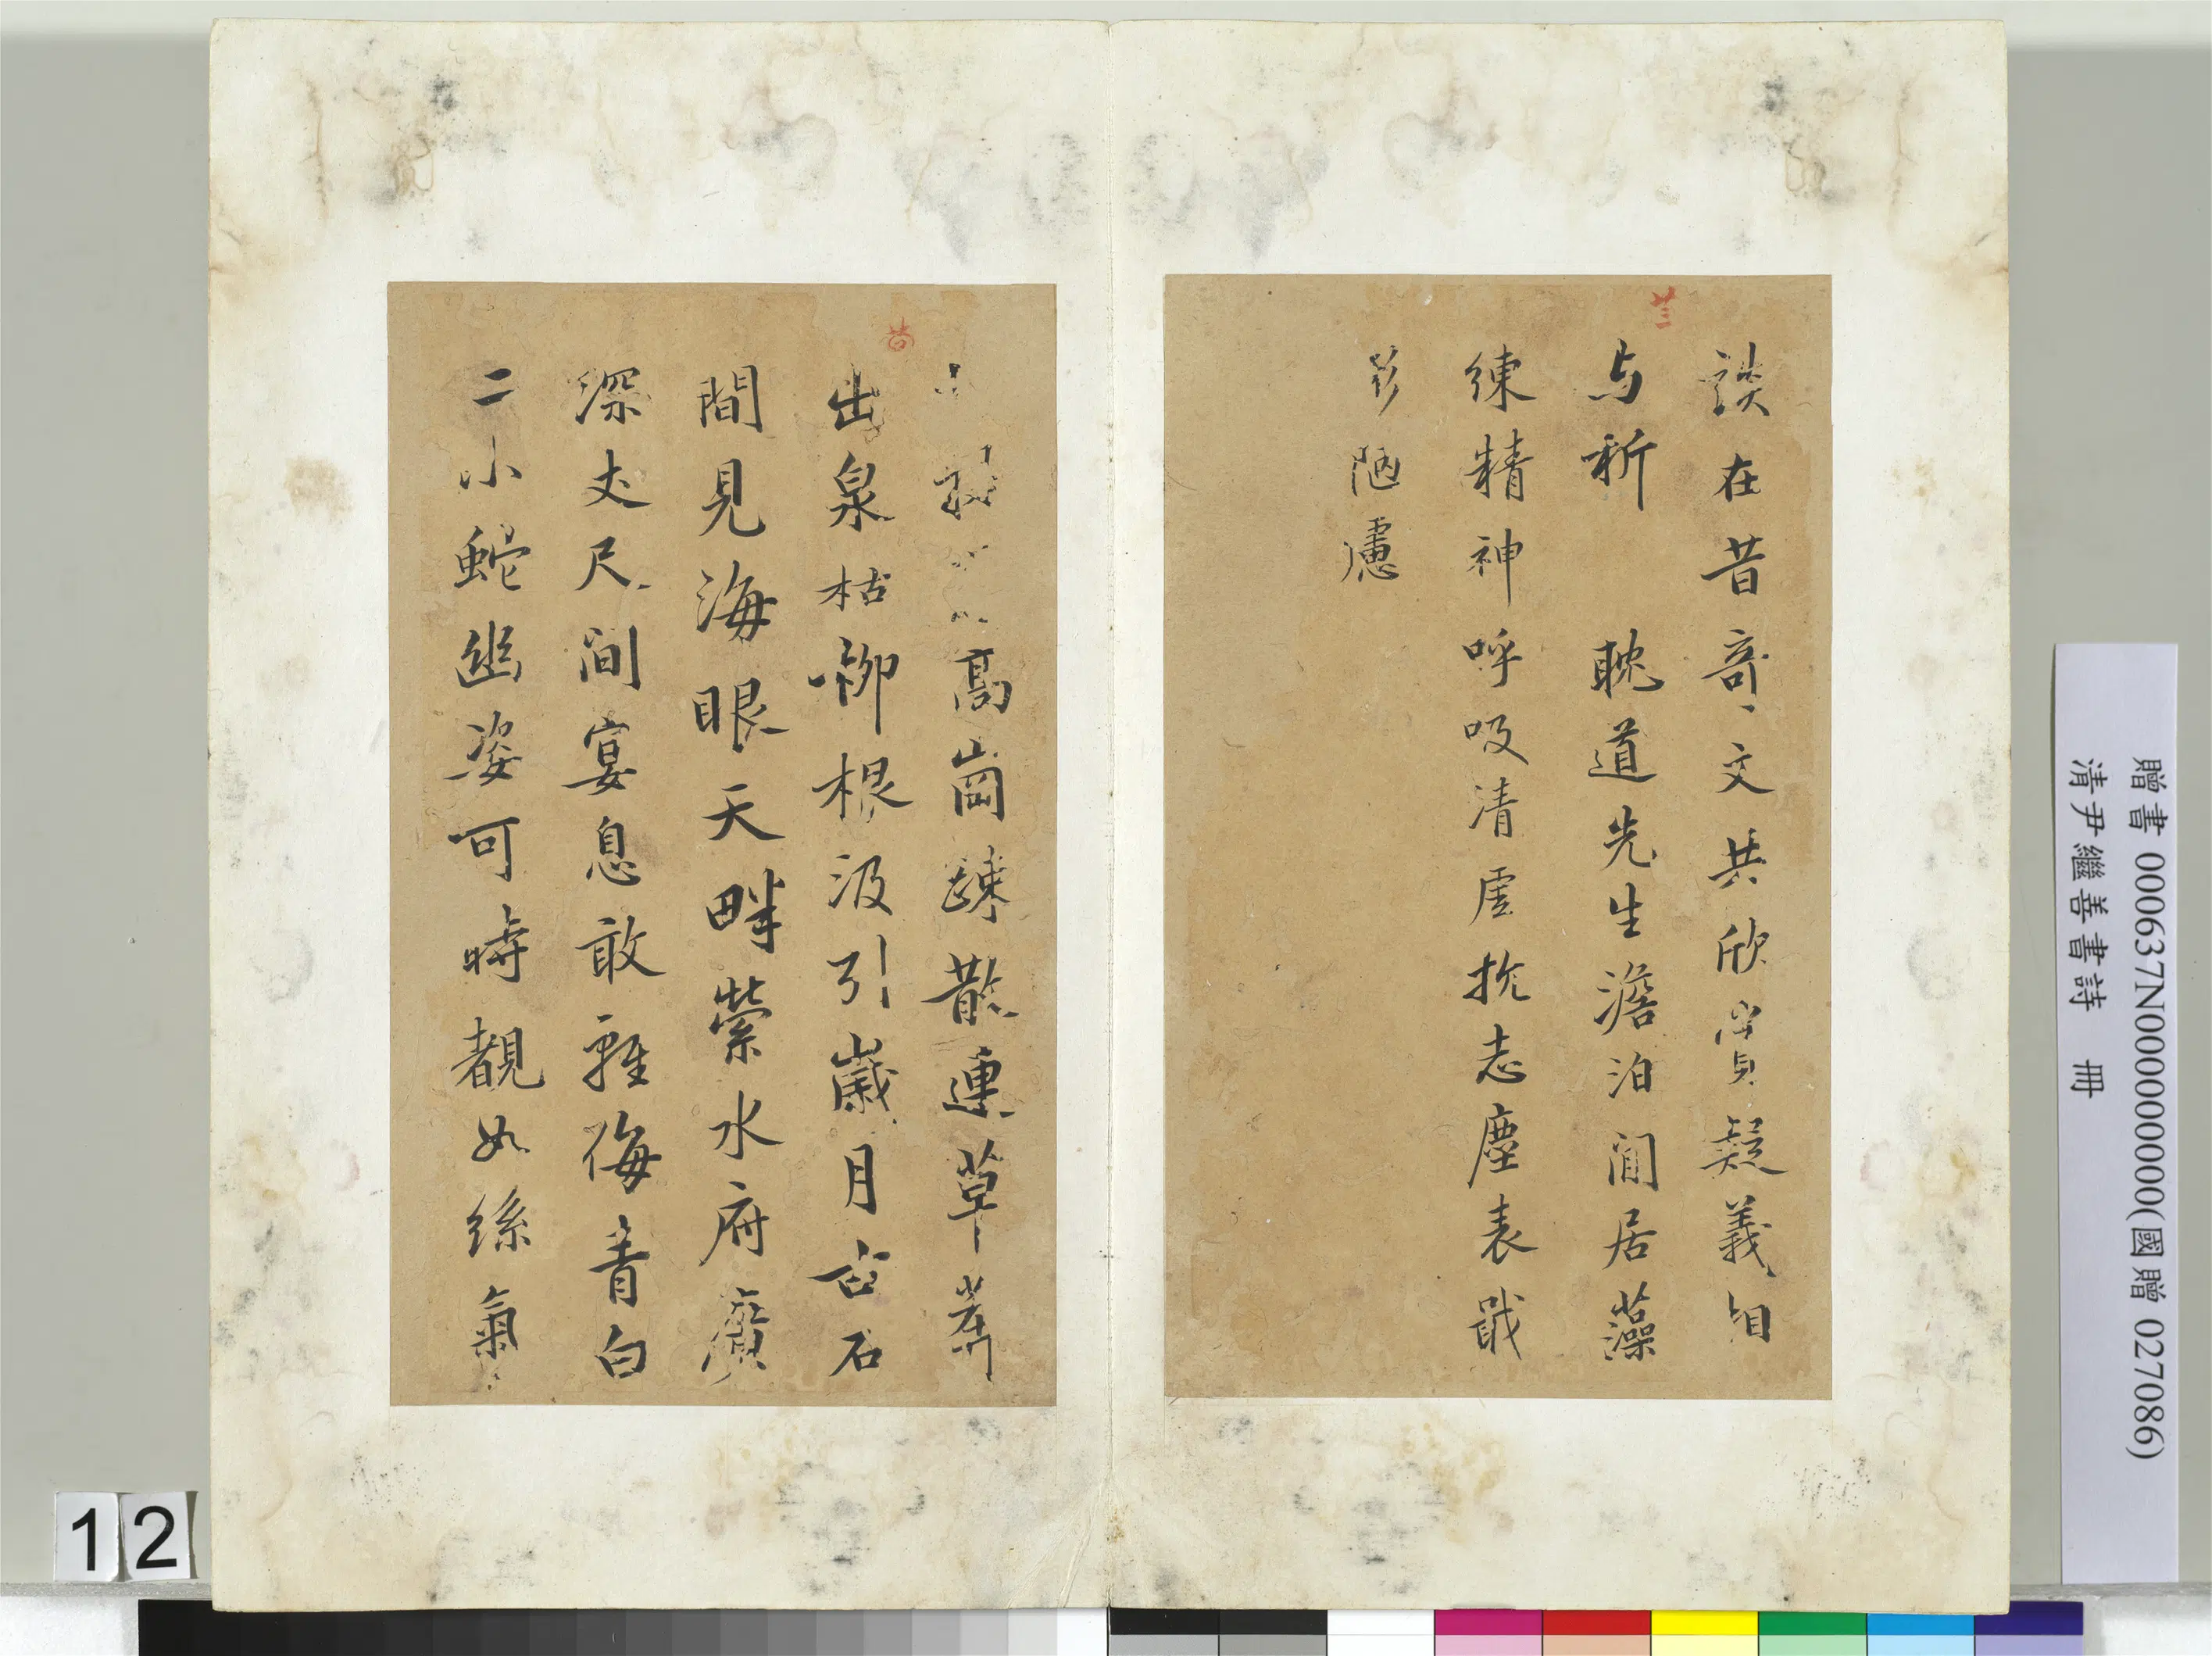 談在昔奇文共欣賞疑義相
与析 耽道先生澹泊閒居藻
練精神呼吸清虛抗志塵表戢
形陋廬
高崗疎散連草莽
出泉枯柳根汲引歲月古石
間見海眼天畔縈水府廣
深丈尺间宴息敢輕侮青白
二小蛇幽姿可時覩如絲氣
贈書 000637N000000000(國贈 027086)
清尹繼善書詩 冊
12